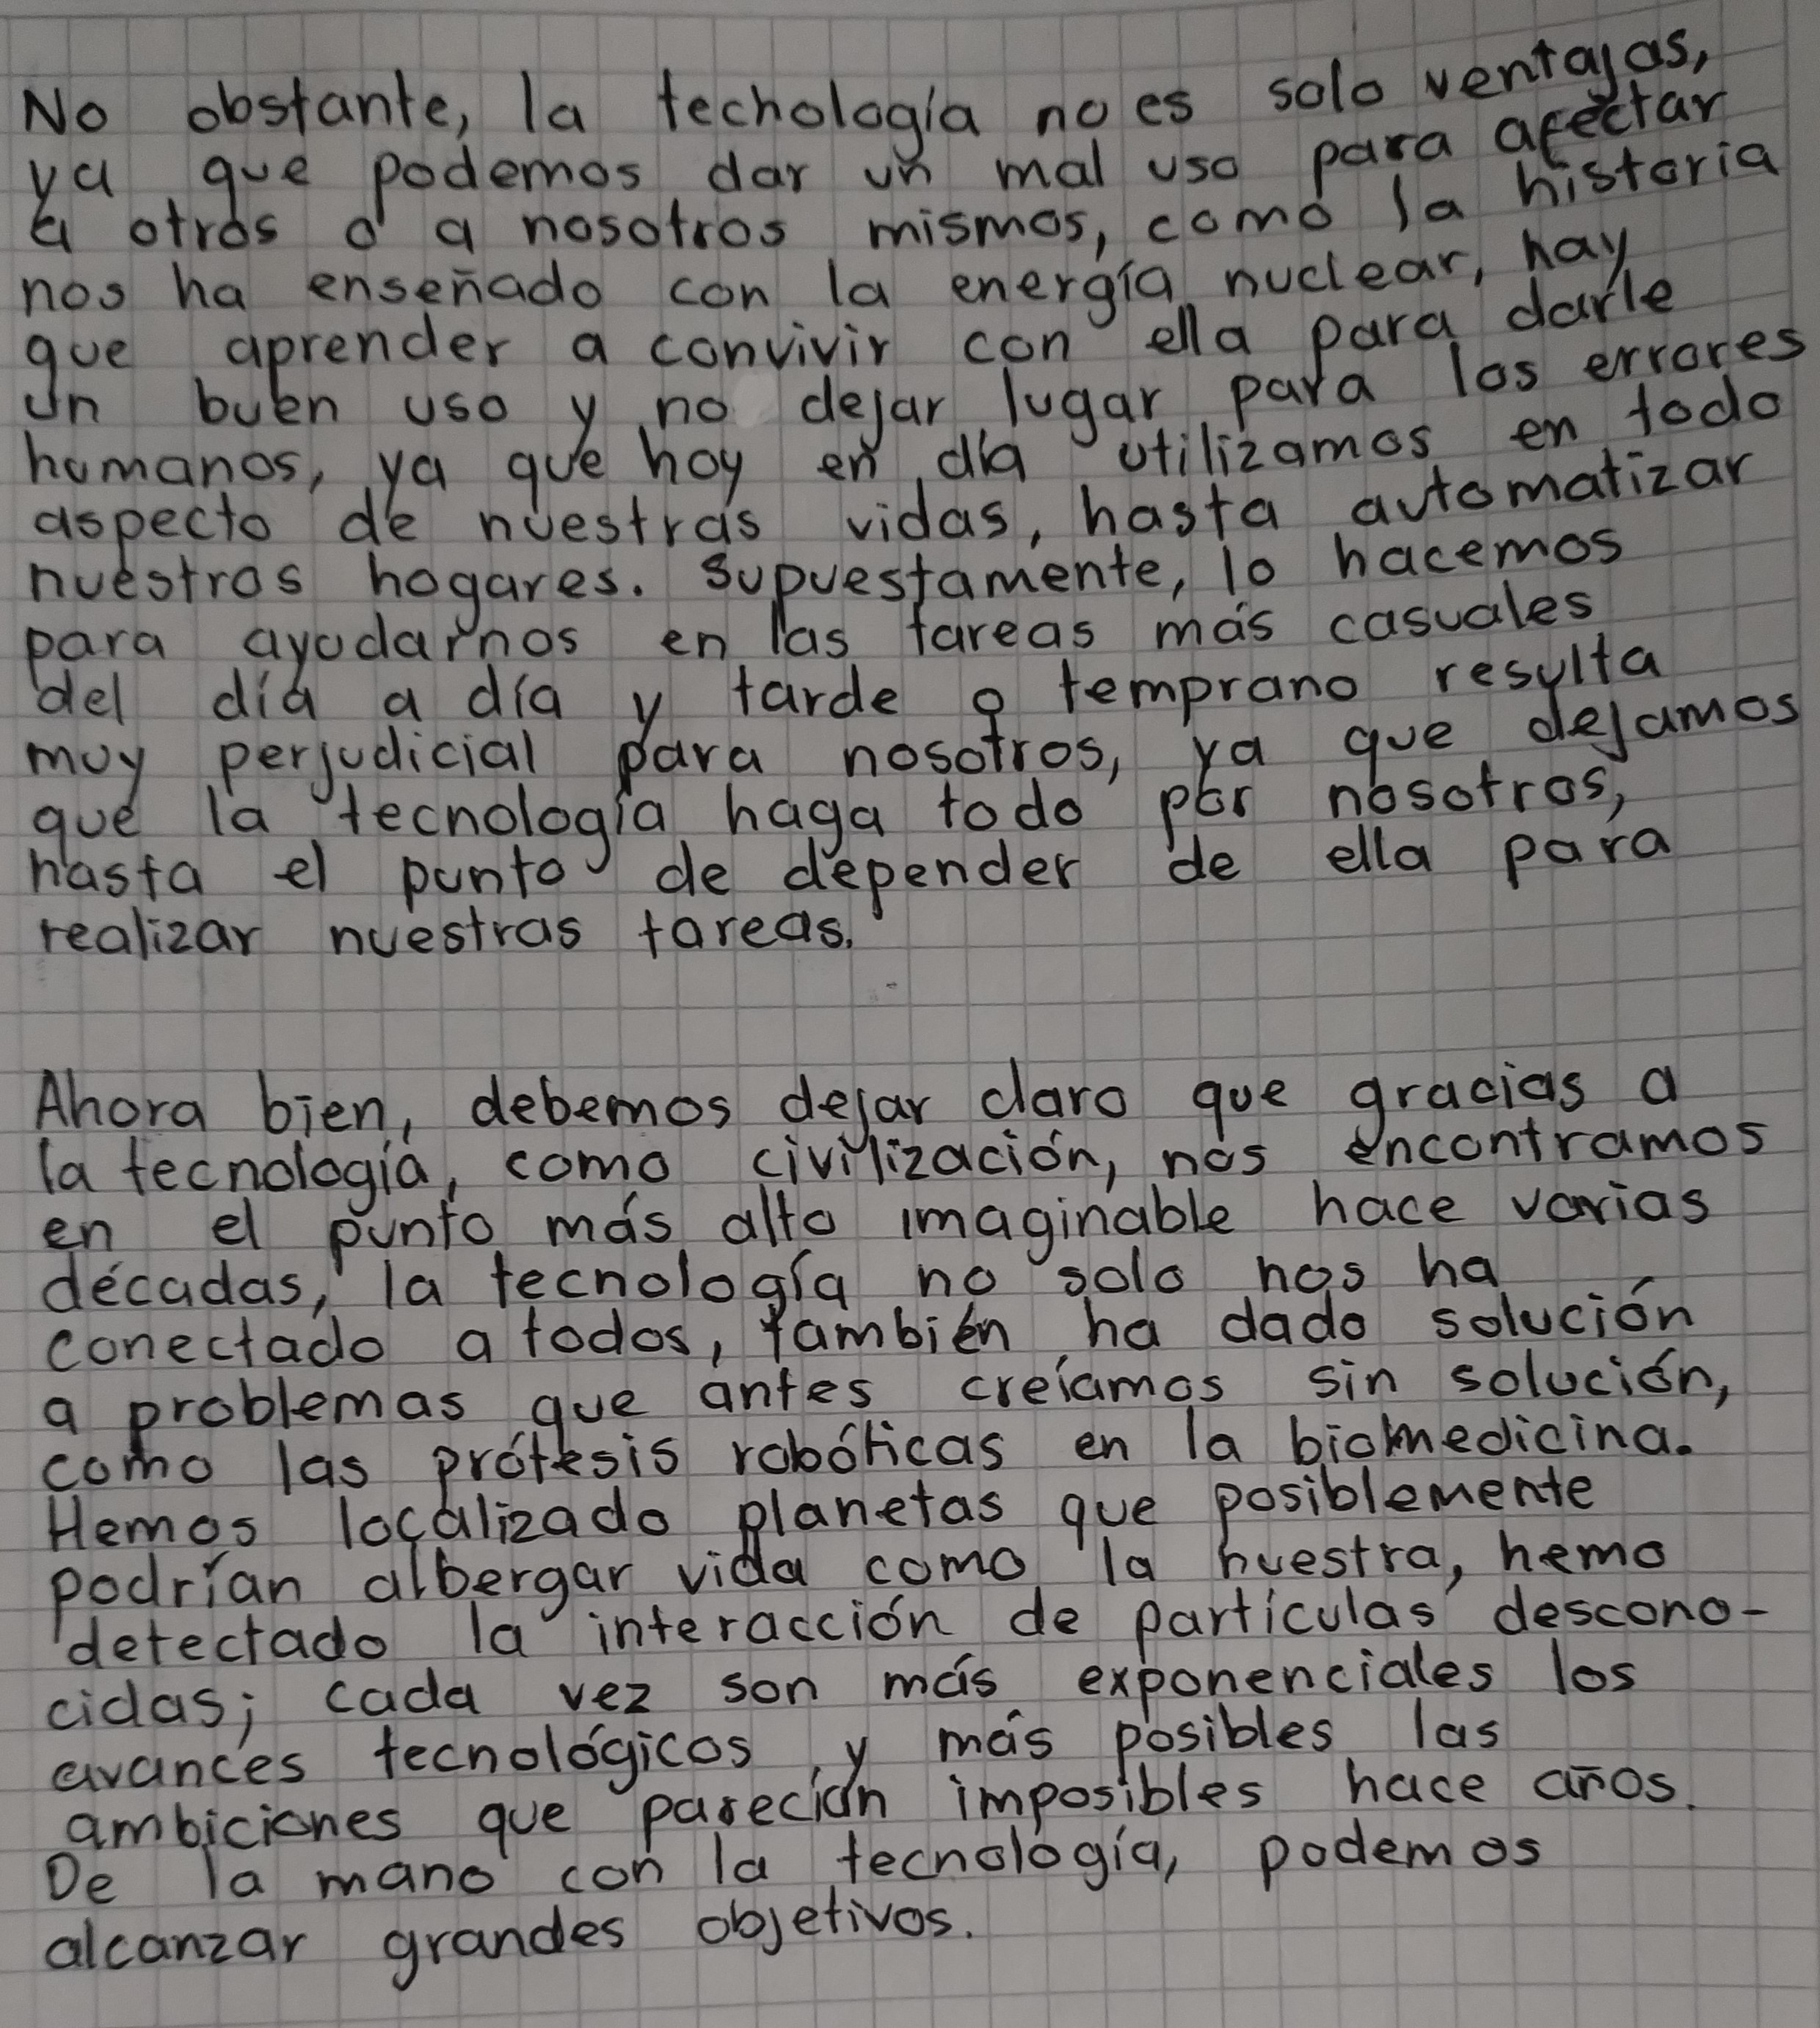 No obstante, la techología no es solo ventajas,
ya que podemos dar un mal uso para afectar
a otros o a nosotros mismos, como la historia
nos ha enseñado con la energía nuclear, hay
que aprender a convivir con ella para darle
un buen uso y no dejar lugar para los errores
humanos, ya que hoy en día utilizamos en todo
aspecto de nuestras vidas, hasta automatizar
nuestros hogares. Supuestamente, lo hacemos
para ayudarnos en las tareas más casuales
del día a día y tarde o temprano resulta
muy perjudicial para nosotros, ya que dejamos
que la tecnología haga todo por nosotros,
hasta el punto de depender de ella para
realizar nuestras tareas.
Ahora bien, debemos dejar claro que gracias a
la tecnología, como civilización, nos encontramos
en el punto más alto imaginable hace varias
décadas, la tecnología no solo nos ha
conectado a todos, también ha dado solución
a problemas que antes creíamos sin solución,
como las prótesis robóticas en la biomedicina.
Hemos localizado planetas que posiblemente
podrían albergar vida como la nuestra, hemo
detectado la interacción de partículas descono-
cidas; cada vez son más exponenciales los
avances tecnológicos y más posibles las
ambiciones que parecían imposibles hace años.
De la mano con la tecnología, podemos
alcanzar grandes objetivos.